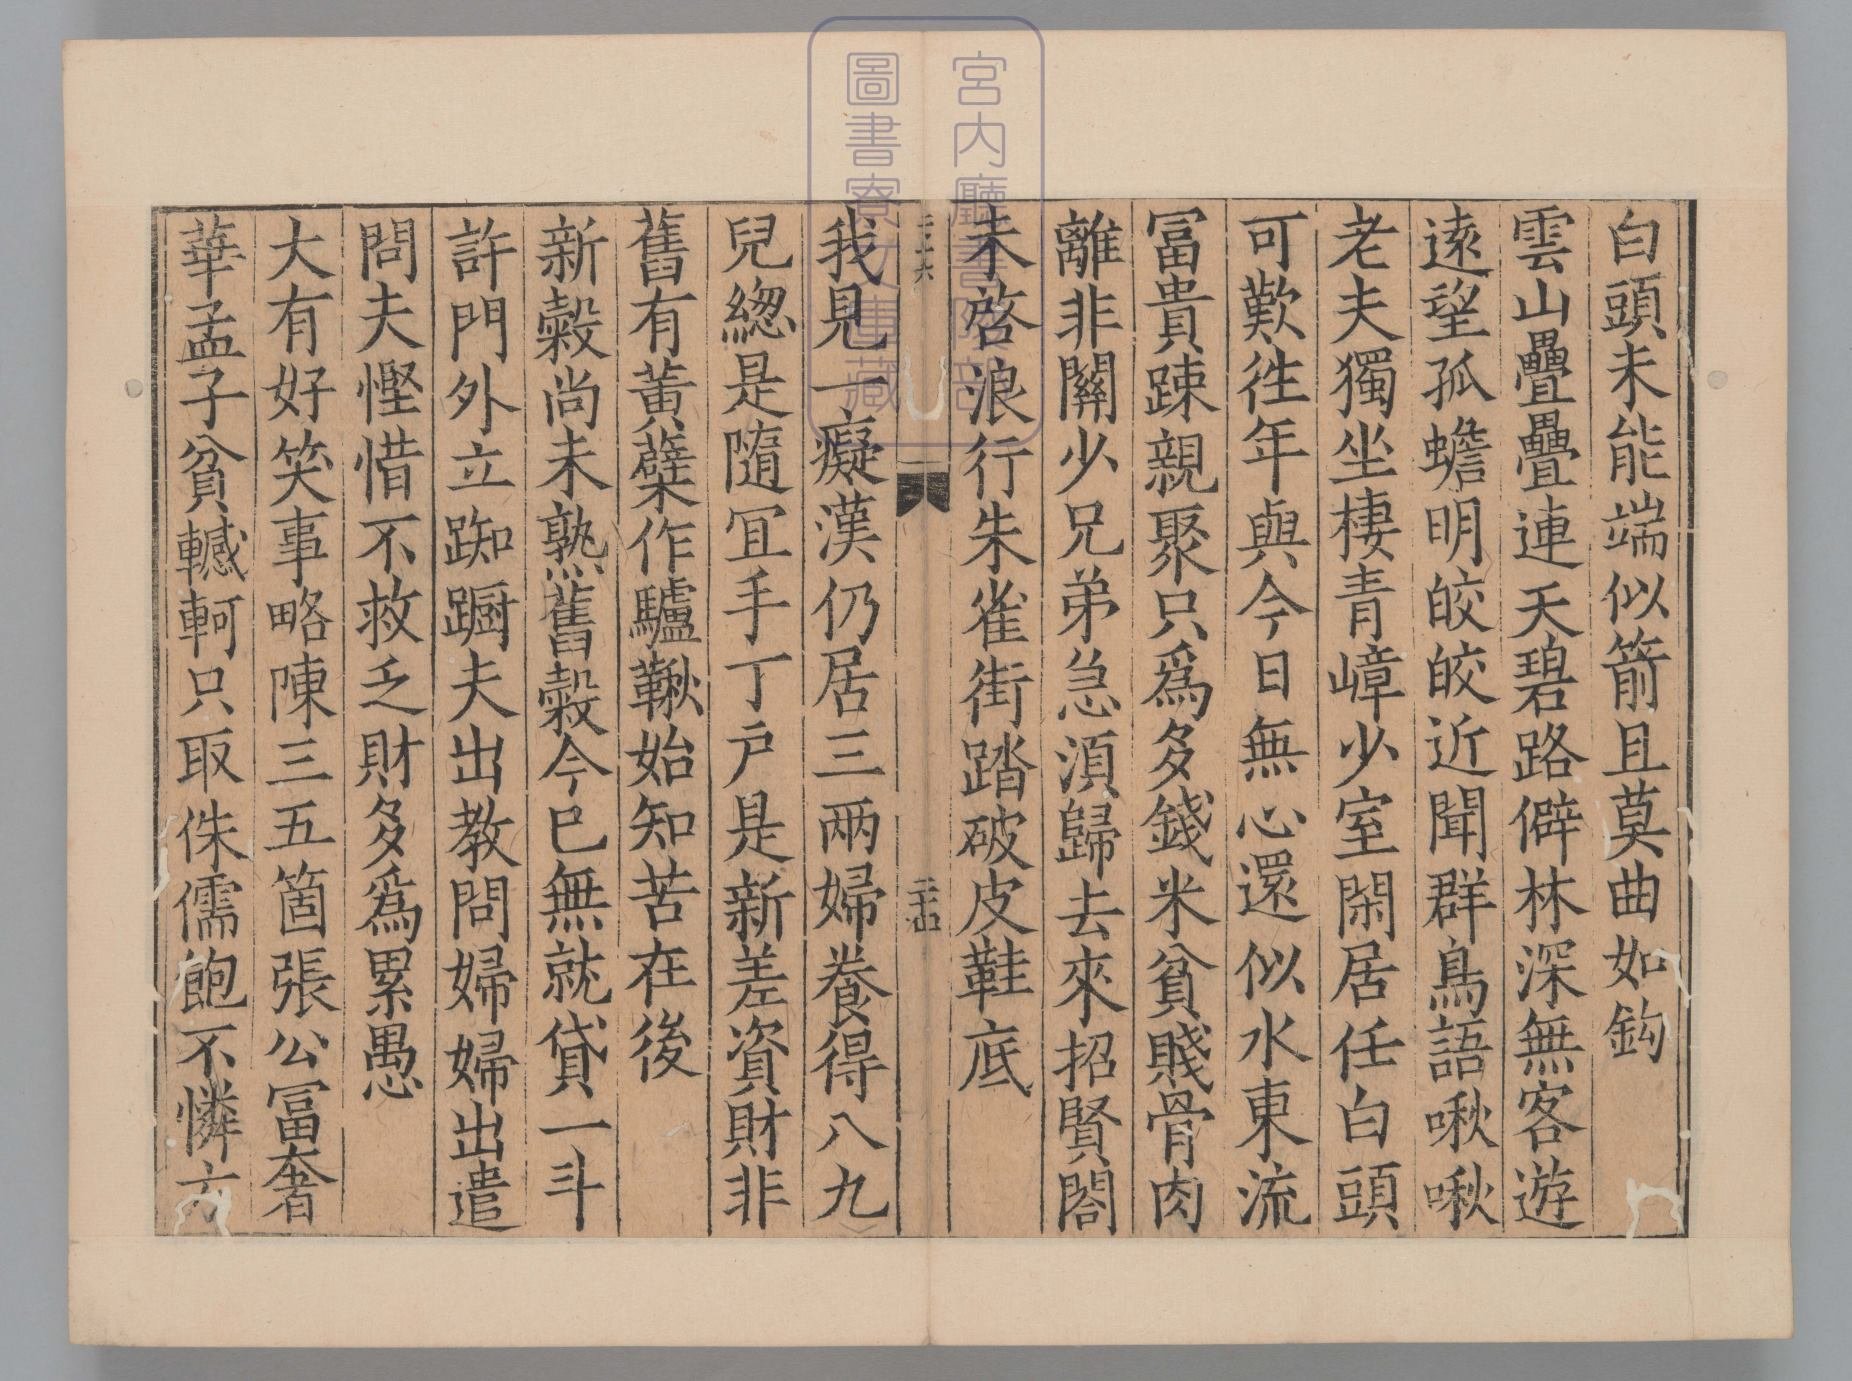 白頭未能端似箭且莫曲如鈎
雲山疊疊連天碧路僻林深無客遊
遠望孤蟾明皎皎近聞群鳥語啾啾
老夫獨坐棲青嶂少室閑居任白頭
可歎徃年與今日無心還似水東流
冨貴踈親聚只爲多錢米貧賤骨肉
離非關少兄弟急須歸去來招賢閤
未啓浪行朱雀街踏破皮鞋底
我見一癡漢仍居三兩婦養得八九
兒緫是隨冝手丁户是新差資財非
舊有黄蘗作驢鞦始知苦在後
新穀尚未熟舊穀今已無就貸一斗
許門外立踟蹰夫出教問婦婦出遣
問夫慳惜不救乏財多爲累愚
大有好笑事略陳三五箇張公冨奢
華孟子貧轗軻只取侏儒飽不憐方
宮内廳書陵部
圖書寮文庫藏